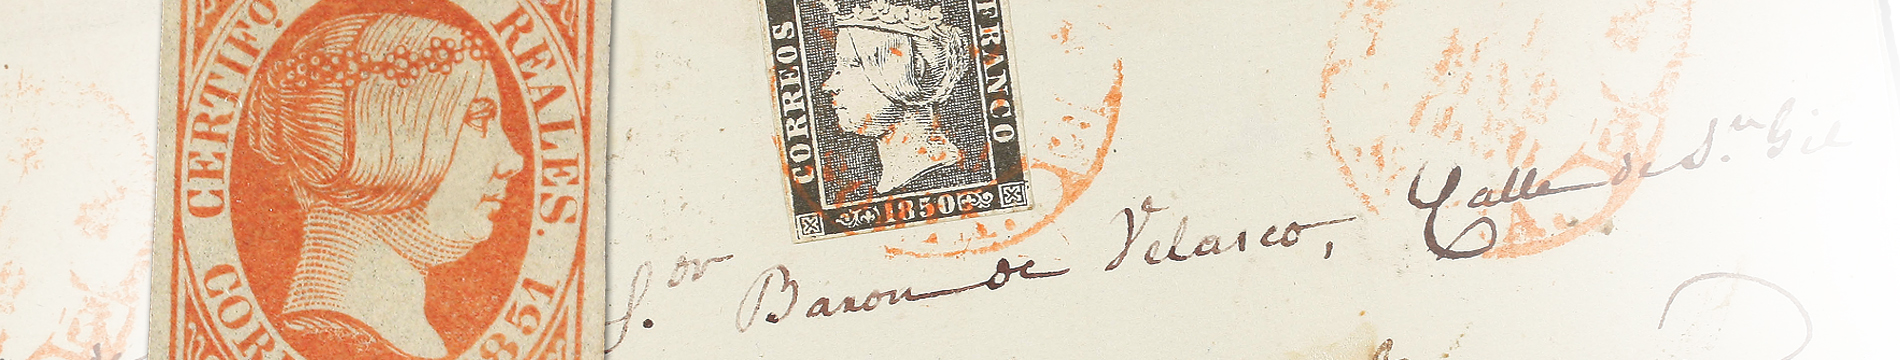 CERTIFO REALES.
CORR 1851
CORREOS FRANCO
1850
S.or Baron de Velasco, Calle de S.n Gil